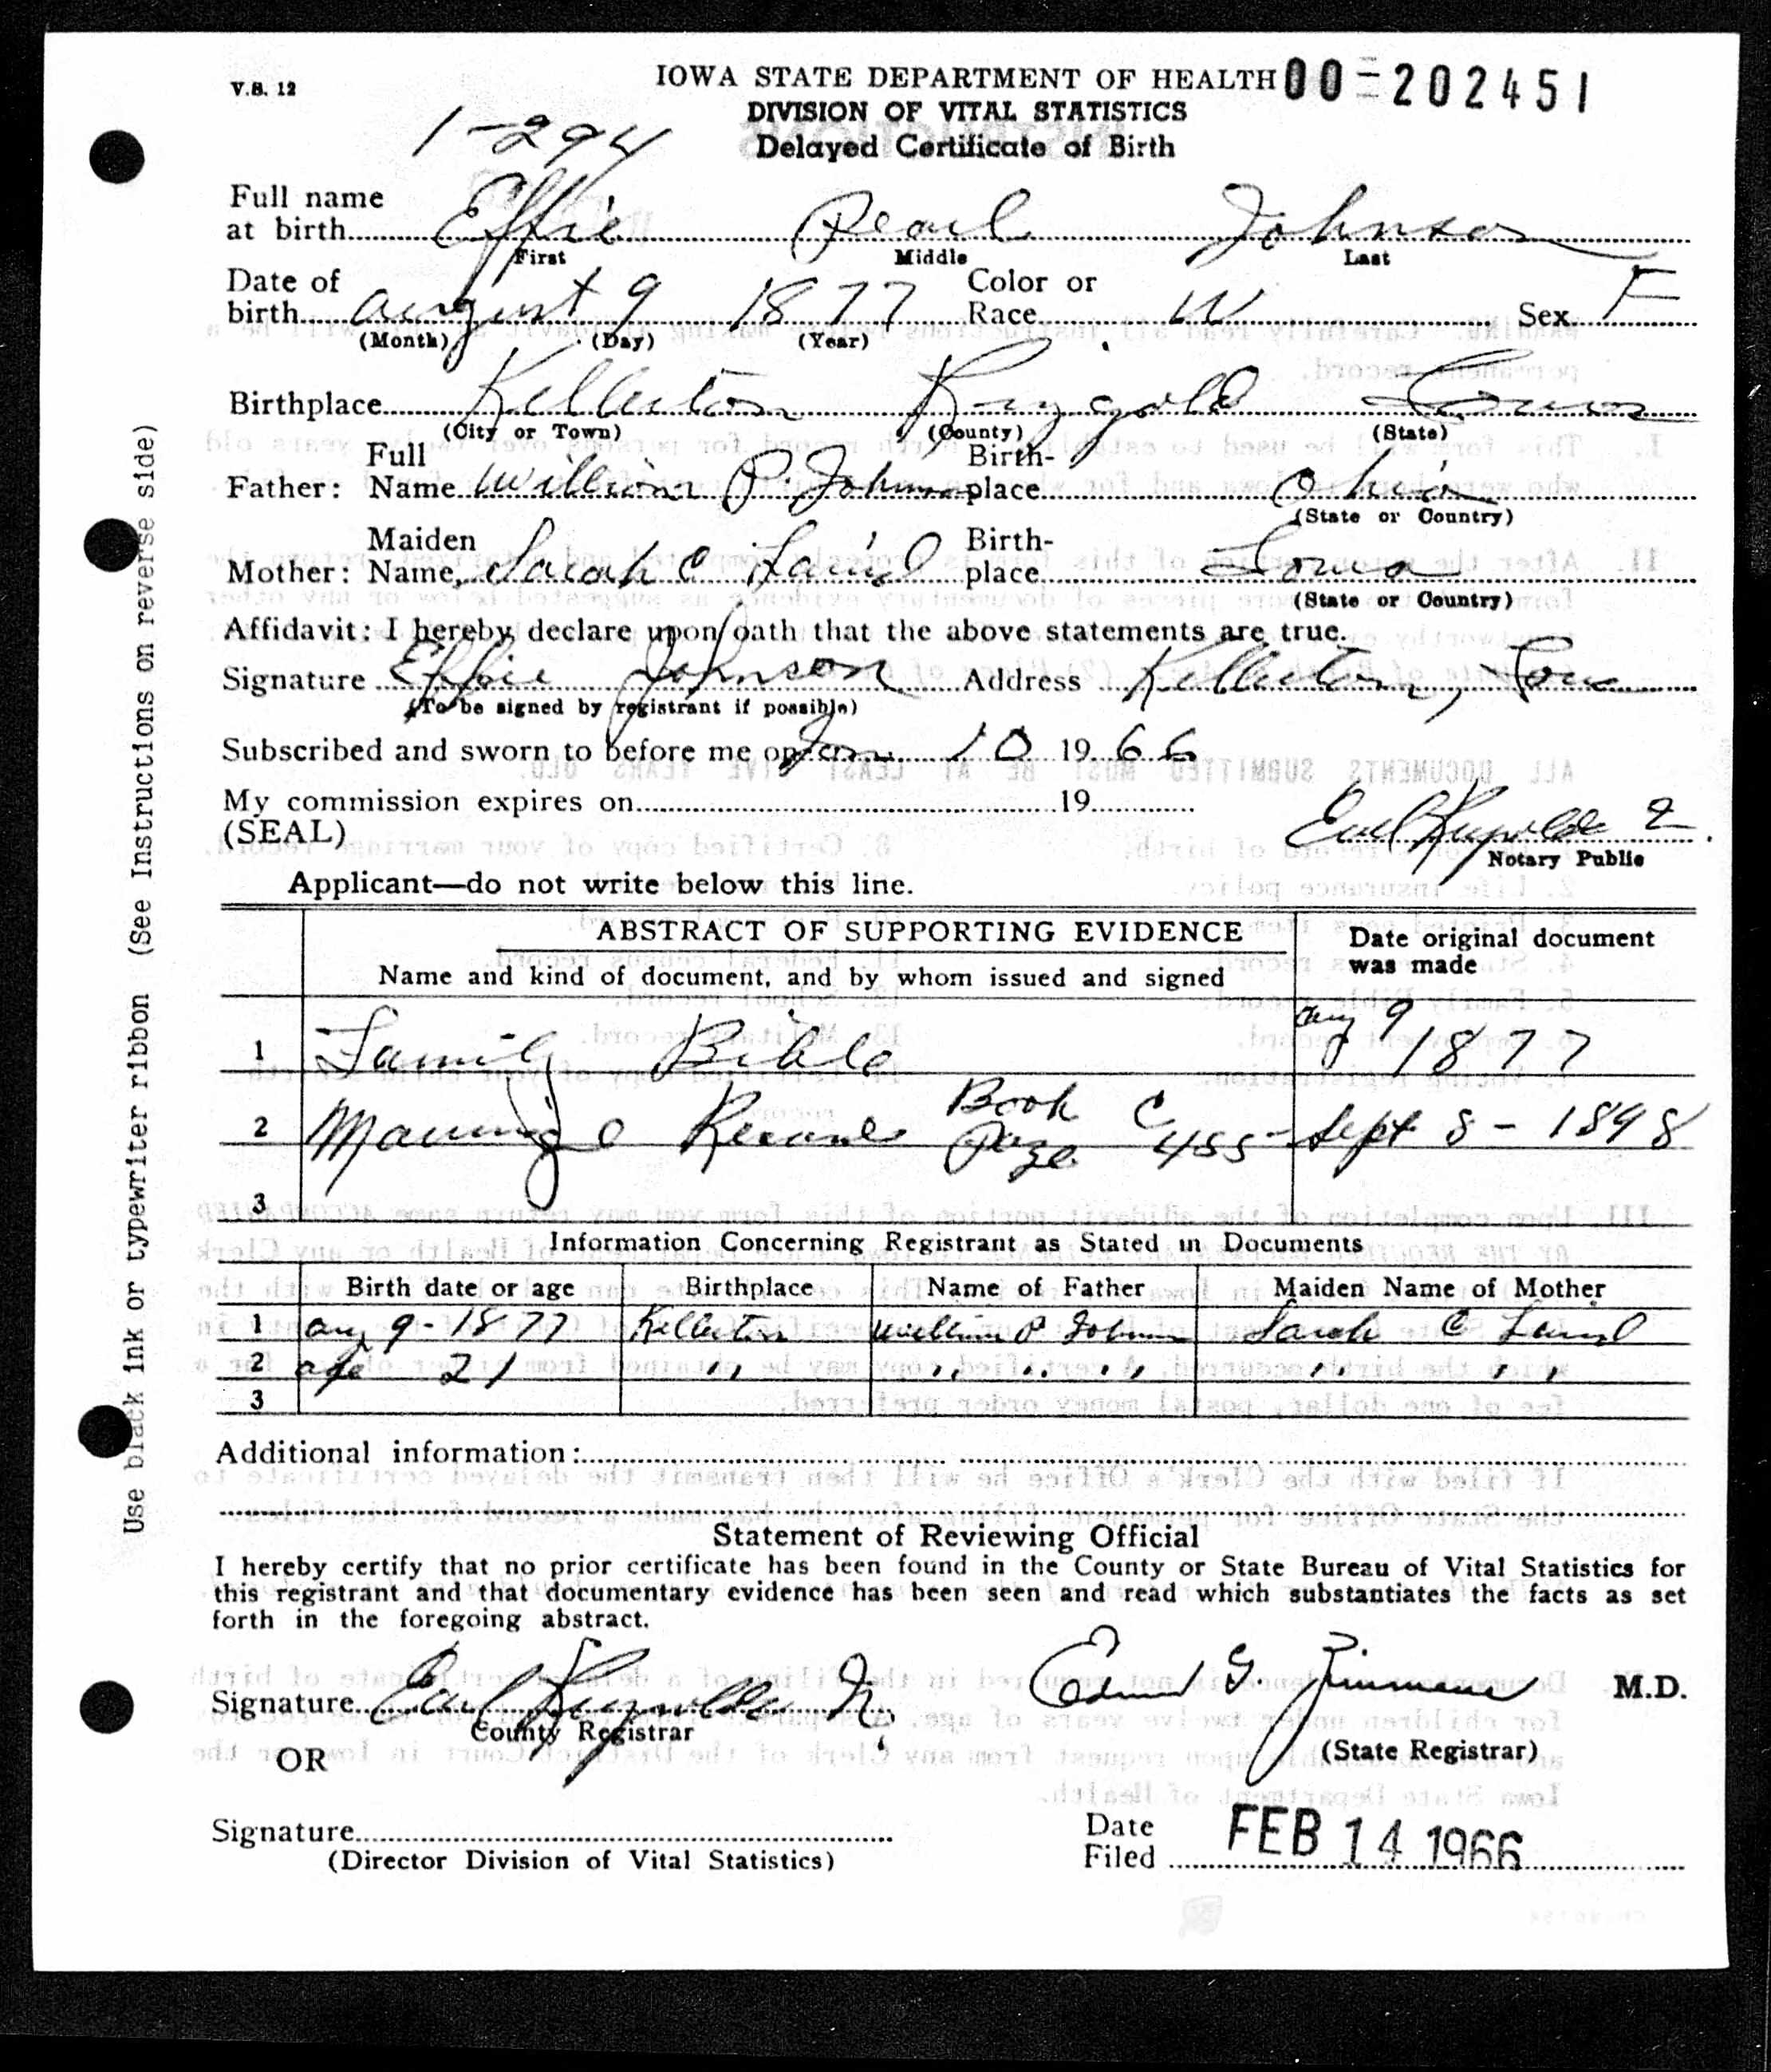 V.S. 12
IOWA STATE DEPARTMENT OF HEALTH 00-202451
DIVISION OF VITAL STATISTICS
1-294
Delayed Certificate of Birth
Full name
at birth Effie Pearl Johnson
First Middle Last
Date of birth August 9 1877 Color or Race W Sex F
(Month) (Day) (Year)
Birthplace Kellerton Ringgold Iowa
(City or Town) (County) (State)
Father: Full Name William P. Johnson Birth-place Ohio
(State or Country)
Mother: Maiden Name Sarah C Laird Birth-place Iowa
(State or Country)
Affidavit: I hereby declare upon oath that the above statements are true.
Signature Effie Johnson Address Kellerton, Iowa
(To be signed by registrant if possible)
Subscribed and sworn to before me on Jan 10 1966
My commission expires on 19
(SEAL)
Earl
Notary Public
Applicant—do not write below this line.
ABSTRACT OF SUPPORTING EVIDENCE
Name and kind of document, and by whom issued and signed
Date original document
was made
1 Family Bible Aug 9 1877
2 Marriage Record Book C Page 455 Sept 8 - 1898
3
Information Concerning Registrant as Stated in Documents
Birth date or age Birthplace Name of Father Maiden Name of Mother
1 Aug 9-1877 Kellerton William P Johnson Sarah C Laird
2 age 21 " " " " " "
3
Additional information:
Statement of Reviewing Official
I hereby certify that no prior certificate has been found in the County or State Bureau of Vital Statistics for
this registrant and that documentary evidence has been seen and read which substantiates the facts as set
forth in the foregoing abstract.
Signature Earl
County Registrar
Edmund G. Zimmerer M.D.
(State Registrar)
OR
Signature
(Director Division of Vital Statistics)
Date
Filed FEB 14 1966
Use black ink or typewriter ribbon (See Instructions on reverse side)